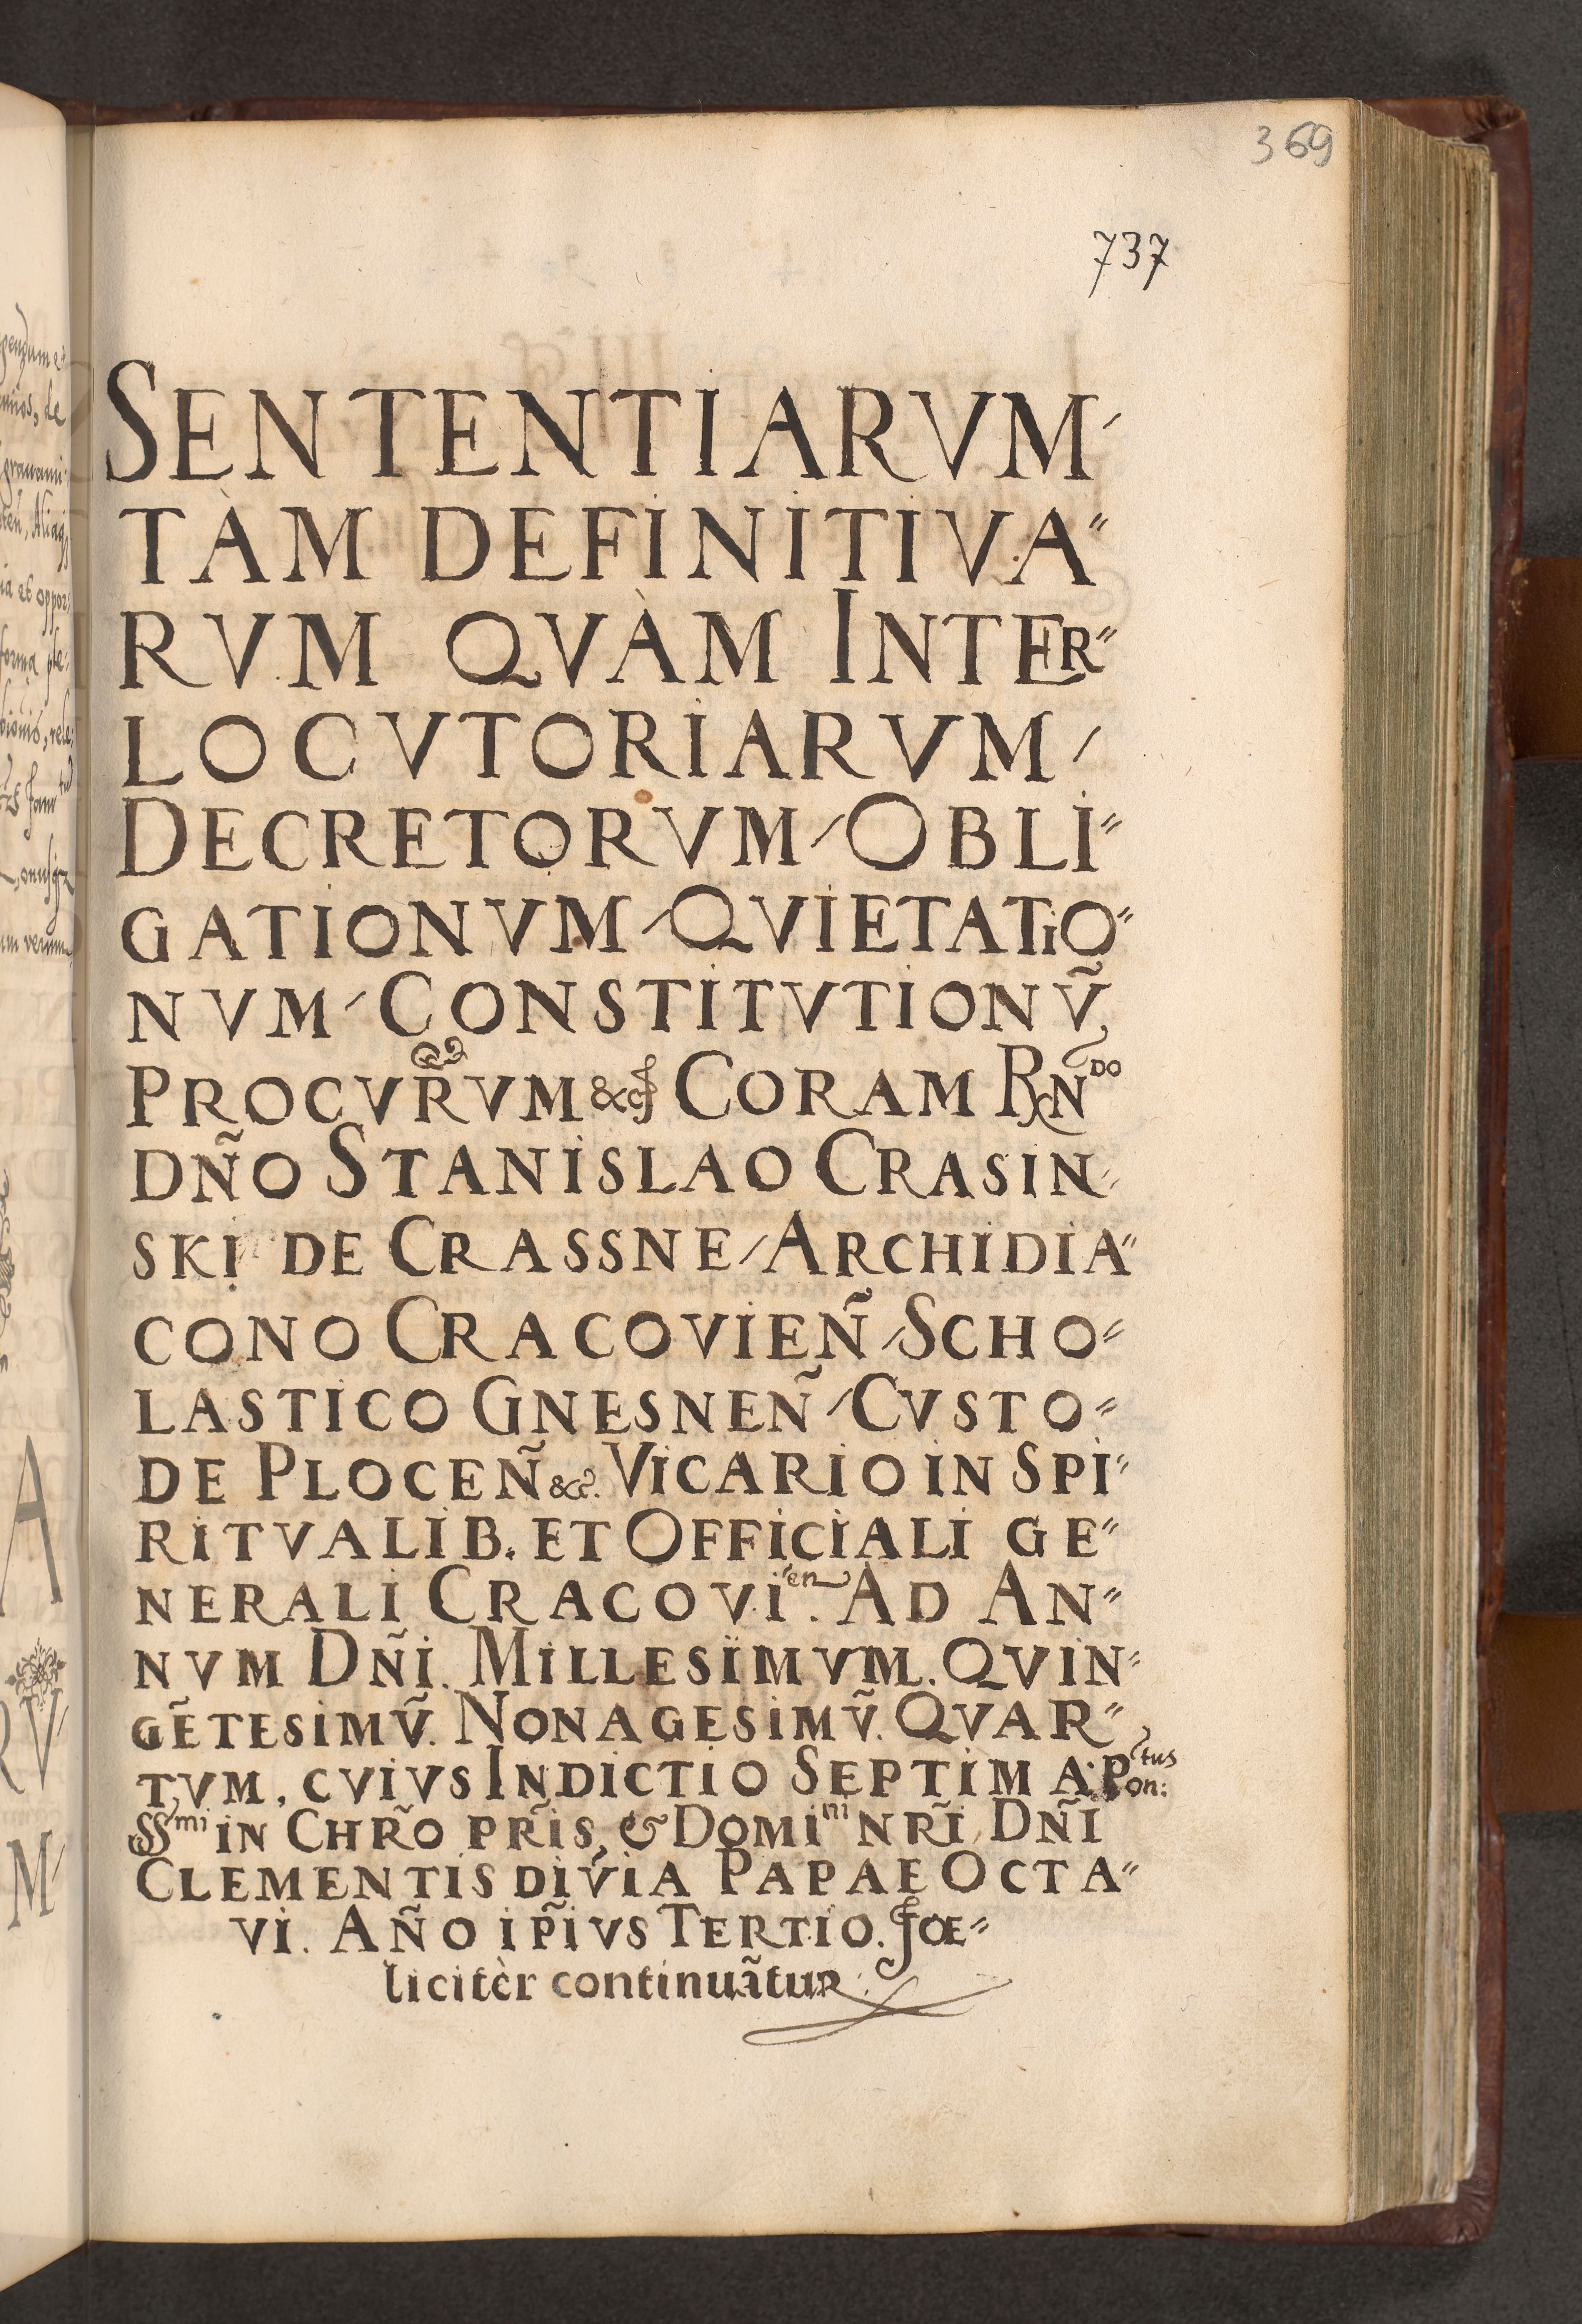 369
737
SENTENTIARVM
TÀM DEFINITIVA
RVM QVÀM INTER
LOCVTORIARVM /
DECRETORVM / OBLI
GATIONVM / QVIETATIO
NVM / CONSTITVTIONṼ
PROCVR̃VM &c CORAM RNDO
DÑO STANISLAO CRASIN
SKI DE CRASSNE / ARCHIDIA
CONO CRACOVIEÑ / SCHO
LASTICO GNESNEÑ / CVSTO
DE PLOCEÑ &c. VICARIO IN SPI
RITVALIB. ET OFFICIALI GE
NERALI CRACOVIen. AD AN
NVM DÑI. MILLESIMVM. QVIN
GẼTESIMṼ. NONAGESIMṼ. QVAR
TVM, CVIVS INDICTIO SEPTIMA. Pontus:
SSmi IN CHR̃O PR̃IS, & DOMIni NR̃I, DÑI
CLEMENTIS DIṼIA PAPAE OCTA
VI. AÑO IP̃IVS TERTIO. FOE
licitèr continuãtur.